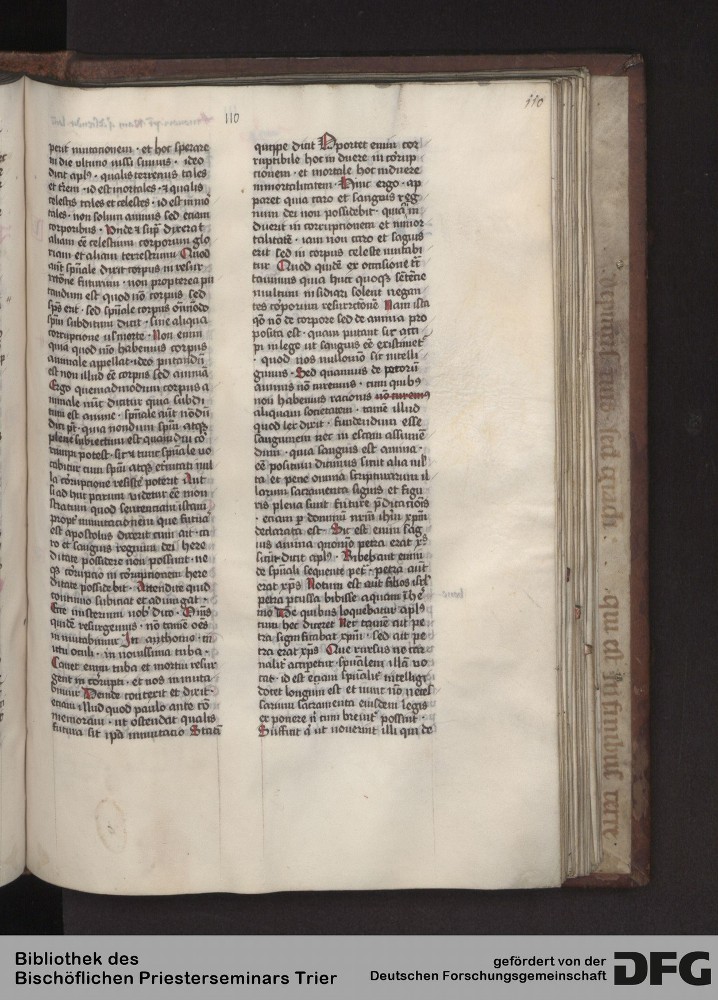 110
110
petit mutationem · et hoc sperare
in die ultimo iussi sumus · ideo
dicit apl̄s · qualis terrenus tales
et t̄reni · id est mortales · ⁊ qualis
celestis tales et celestes · id est īmor
tales · non solum animis sed etiam
corporibus · Unde ⁊ sup̄ dixerat
aliam eē celestium corporum glo
riam et aliam terrestrium Quod
aut̄ spūale dixit corpus in resur
rectōne futurum · non propterea pu
tandum est quod nō corpus sed
sp̄s erit · sed spūale corpus om̄ino
spūi subditum dicit · sine aliqua
corruptione ul̄ morte · Non enim
quia quod nūc habemus corpus
animale appellat · ideo putandū
est non illud eē corpus sed animā
Ergo quemadmodum corpus a
nimale nūc dicitur quia subdi
tum est anime · spūale aut̄ nōdū
dici pt̄ · quia nondum spūi atqꝫ
plene subiectum est quamdiu cor
rumpi potest · sic ⁊ tunc spūale vo
cabitur cum spūi atqꝫ et̄nitati nul
la corruptione resiste᷑ poterit Aut
si ad huc parum videtur eē mon
stratum quod sententiam istam
propt̄ immutacionem que futura
est apostolus dixerit cum ait · ca
ro et sanguis regnum dei here
ditate possidere non possunt · ne
qꝫ corruptio in corruptionem here
ditate possidebit · Attendite quid
continuo subiciat et adiungat ·
Ecce misterium vob̄ dico · Om̄s
quidē resurgemus · nō tamē oēs
in mutabimur In atthomo · in
ictu oculi · in novissima tuba ·
Canet enim tuba et mortui resur
gent in corrupti · et nos in muta
bimur Deinde conterit et dixit ·
etiam illud quod paulo ante cō
memoravi · ut ostendat qualis
futura sit ip̄a inmutacio Statī
quippe dicit Oportet enim cor
ruptibile hoc induere in corrup
tionem · et mortale hoc induere
inmortalitatem · Hinc ergo · ap
paret quia caro et sanguis reg
num dei non possidebit · quia cū in
duerit in corruptionem et inmor
talitatē · iam non caro et sāguis
erit sed in corpus celeste mutabi
tur Quod quidē ex occasione tc̄
tavimus quia huic quoqꝫ sētēne
multum insidiari solent negan
tes corporum resurrectionē Nam ista
qō nō de corpore sed de anima pro
posita est · quam putant sic acci
pi in lege ut sanguis eē existimet᷑
· quod nos nullo mō sic intelli
gimus · Sed quamvis de pecorū
animis nō curemus · cum quibꝫ
non habemus racionis nō curemꝰ
aliquam societatem · tamē illud
quod lex dixit · fundendum esse
sanguinem nec in escam assumē
dum · quia sanguis est anima ·
eē positum dicimus sicut alia ml̄
ta et pene omnia scripturarum il
larum sacramenta signis et figu
ris plena sunt future p̄dicacionis
· que iam p̄ dominū nrm̄ ih̄m xp̄m
declarata est · Sic est enim sāg
uis anima quomō petra erat xp̄s
sicut dicit apl̄s · Bibebant enim
de spūali sequente pet᷑ · petra aut̄
erat xp̄s Notum est aut̄ filios isrl̄
petra p̄cussa bibisse aquam ī here
mo De quibus loquebatur apl̄s
cum hec diceret Nec tamē ait pe
tra significabat xpm̄ · sed ait pe
tra erat xp̄s Que rursus ne car
naliter acciperetur · spūalem illā vo
cat · id est eam spūaliter intelligi
docet longum est et nunc nō necess
sarium sacramenta eiusdem legis
ex ponere n̄ cum breuiter possunt ·
Sufficit g̊ ut noverint illi qui de
sed gradi
qui est
infinibus terre
Bibliothek des
Bischöflichen Priesterseminars Trier
gefördert von der
Deutschen Forschungsgemeinschaft
DFG